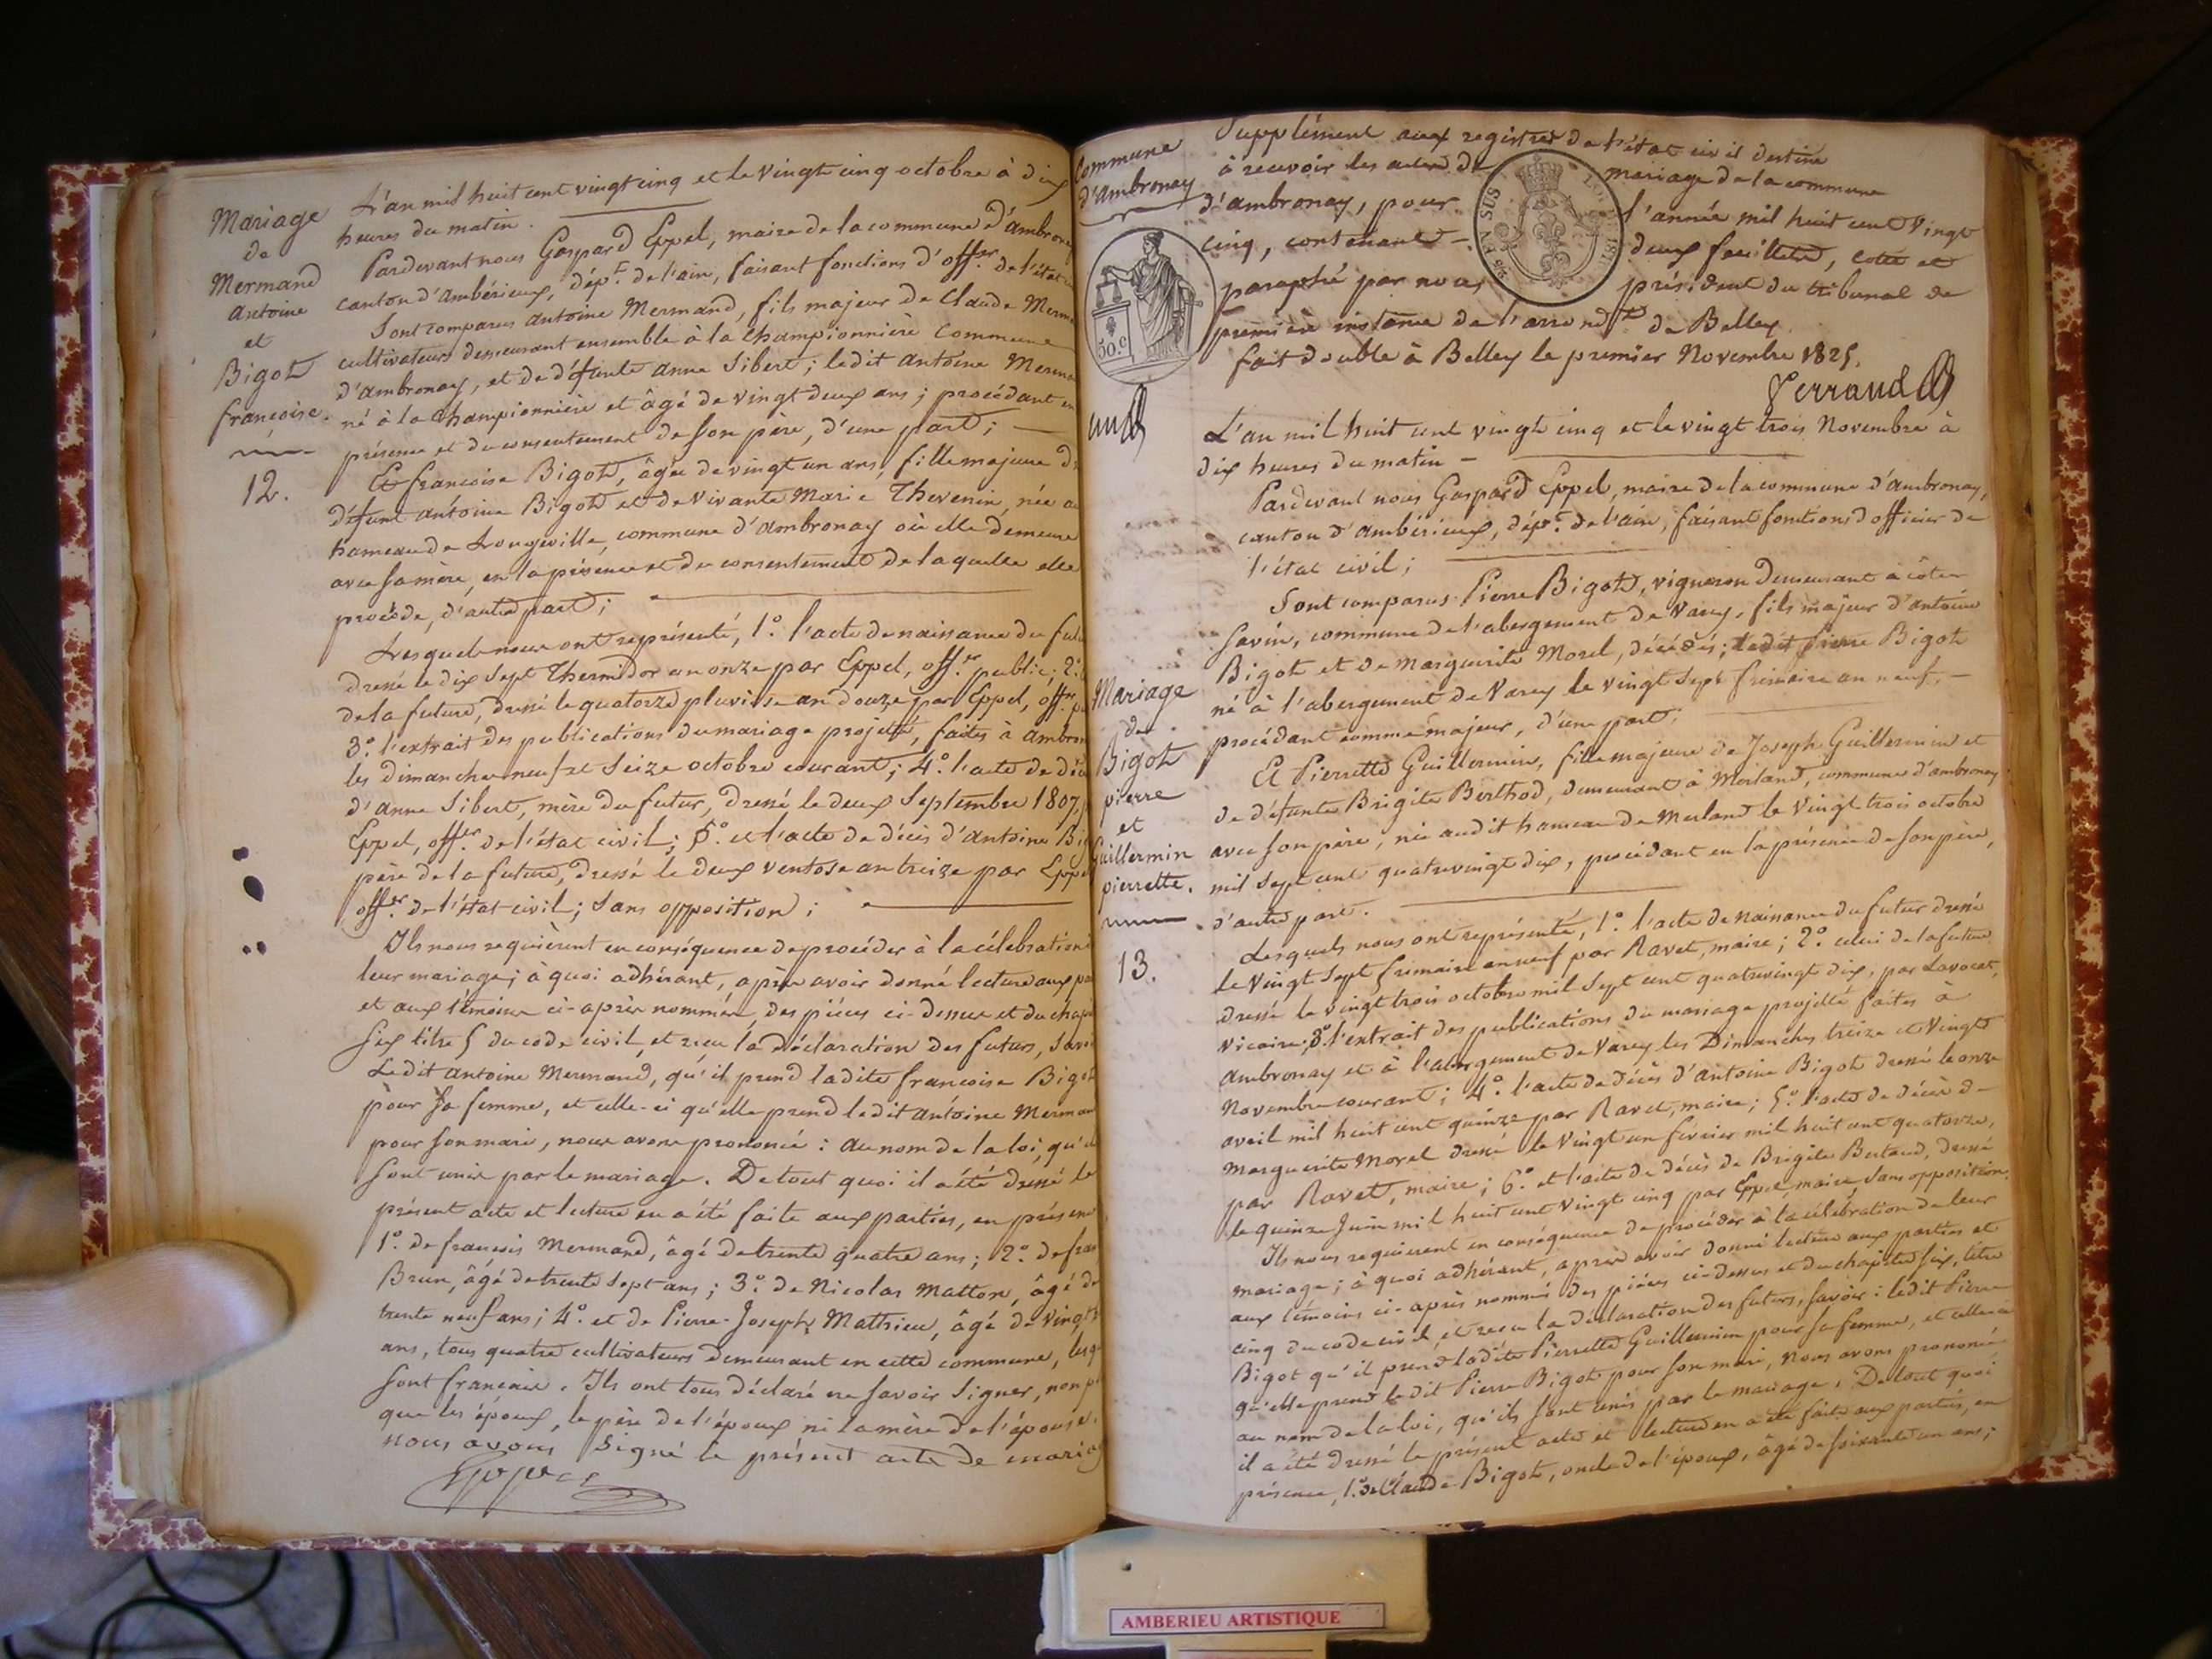 Mariage
de
Mermand
antoine
et
Bigot
françoise.
12.
L'an mil huit cent vingt cinq et le vingt cinq octobre à dix
heures du matin.
Pardevant nous Gaspard Eppel, maire de la commune d'ambron
canton d'ambérieux, dép.t de l'ain, faisant fonctions d'off.er de l'état
Sont comparus antoine Mermand, fils majeur de Claude Merm
cultivateurs demeurant ensemble à la Championnière commune
d'ambronay, et de défunte anne Sibert; ledit antoine Merma
né à la Championnière et âgé de vingt deux ans; procédant en
présence et du consentement de son père, d'une part;
Et françoise Bigot, âgée de vingt un ans, fille majeure d
défunt antoine Bigot et de vivante Marie Thevenin, née au
hameau de Longeville, commune d'ambronay où elle demeure
avec sa mère, en la présence et du consentement de laquelle elle
procède, d'autre part;
Lesquels nous ont représenté, 1.° l'acte de naissance du futu
dressé le dix sept Thermidor an onze par Eppel, off.er public; 2.°
de la future, dressé le quatorze pluviôse an douze par Eppel, off.er p
3.° l'extrait des publications du mariage projetté, faites à ambron
les dimanches neuf et seize octobre courant; 4.° l'acte de déc
d'anne Sibert, mère du futur, dressé le deux Septembre 1807,
Eppel, off.er de l'état civil; 5.° et l'acte de décès d'antoine Bi
père de la future, dressé le deux ventose an treize par Eppe
off.er de l'état civil; sans opposition;
Ils nous requièrent en conséquence de procéder à la célébration
leur mariage; à quoi adhérant, après avoir donné lecture aux pa
et aux témoins ci-après nommés, des pièces ci-dessus et du chapi
six titre 5 du code civil, et reçu la déclaration des futurs, Savoi
Ledit antoine Mermand, qu'il prend ladite françoise Bigot
pour sa femme, et celle-ci qu'elle prend ledit antoine Merman
pour son mari, nous avons prononcé: au nom de la loi, qu'il
sont unis par le mariage. De tout quoi il a été dressé le
présent acte et lecture en a été faite aux parties, en présen
1.° de françois Mermand, âgé de trente quatre ans; 2.° de fran
Brun, âgé de trente sept ans; 3.° de Nicolas Matton, âgé de
trente neuf ans; 4.° et de Pierre-Joseph Mathieu, âgé de vingt
ans, tous quatre cultivateurs demeurant en cette commune, lesq
sont français. Ils ont tous déclaré ne savoir signer, non p
que les époux, le père de l'époux ni la mère de l'épouse.
nous avons signé le présent acte de mariag
Eppel
Commune
d'ambronay
Supplément aux registres de l'état civil destiné
à recevoir les actes de mariage de la commune
d'ambronay, pour l'année mil huit cent vingt
cinq, contenant deux feuillets, coté et
paraphé par nous président du tribunal de
première instance de l'arrond.t de Belley
fait double à Belley le premier Novembre 1825.
50.c
% EN SUS
un
L'an mil huit cent vingt cinq et le vingt trois Novembre à
dix heures du matin
Pardevant nous Gaspard Eppel, maire de la commune d'ambronay,
canton d'ambérieux, dép.t de l'ain, faisant fonctions d'officier de
l'état civil;
Sont comparus Pierre Bigot, vigneron demeurant à côte
Savin, commune de l'abergement de Varey, fils majeur d'antoine
Bigot et de Marguerite Morel, décédés; ledit Pierre Bigot
né à l'abergement de Varey le vingt sept frimaire an neuf,
procédant comme majeur, d'une part;
Mariage
de
Bigot
pierre
et
Guillermin
pierrette.
13.
Et Pierrette Guillermin, fille majeure de Joseph Guillermin et
de défunte Brigite Berthod, demeurant à Merland, commune d'ambronay
avec son père, née audit hameau de Merland le vingt trois octobre
mil sept cent quatrevingt dix, procédant en la présence de son père,
d'autre part.
Lesquels nous ont représenté, 1.° l'acte de naissance du futur dressé
le vingt sept frimaire an neuf par Ravet, maire; 2.° celui de la future
dressé le vingt trois octobre mil sept cent quatrevingt dix, par Lavocat,
vicaire; 3.° l'extrait des publications du mariage projetté faites à
ambronay et à l'abergement de Varey les Dimanches treize et vingt
Novembre courant; 4.° l'acte de décès d'antoine Bigot dressé le onze
avril mil huit cent quinze par Ravet, maire; 5.° l'acte de décès de
Marguerite Morel dressé le vingt un février mil huit cent quatorze,
par Ravet, maire; 6.° et l'acte de décès de Brigite Bertaud, dressé
le quinze Juin mil huit cent vingt cinq par Eppel, maire, sans opposition.
Ils nous requièrent en conséquence de procéder à la célébration de leur
mariage; à quoi adhérant, après avoir donné lecture aux parties et
aux témoins ci-après nommés des pièces ci-dessus et du chapitre six, titre
cinq du code civil, et reçu la déclaration des futurs, Savoir: ledit Pierre
Bigot qu'il prend ladite Pierrette Guillermin pour sa femme, et celle-ci
qu'elle prend ledit Pierre Bigot pour son mari, nous avons prononcé
au nom de la loi, qu'ils sont unis par le mariage. De tout quoi
il a été dressé le présent acte et lecture en a été faite aux parties, en
présence, 1.° de Claude Bigot, oncle de l'époux, âgé de soixante un ans;
AMBERIEU ARTISTIQUE